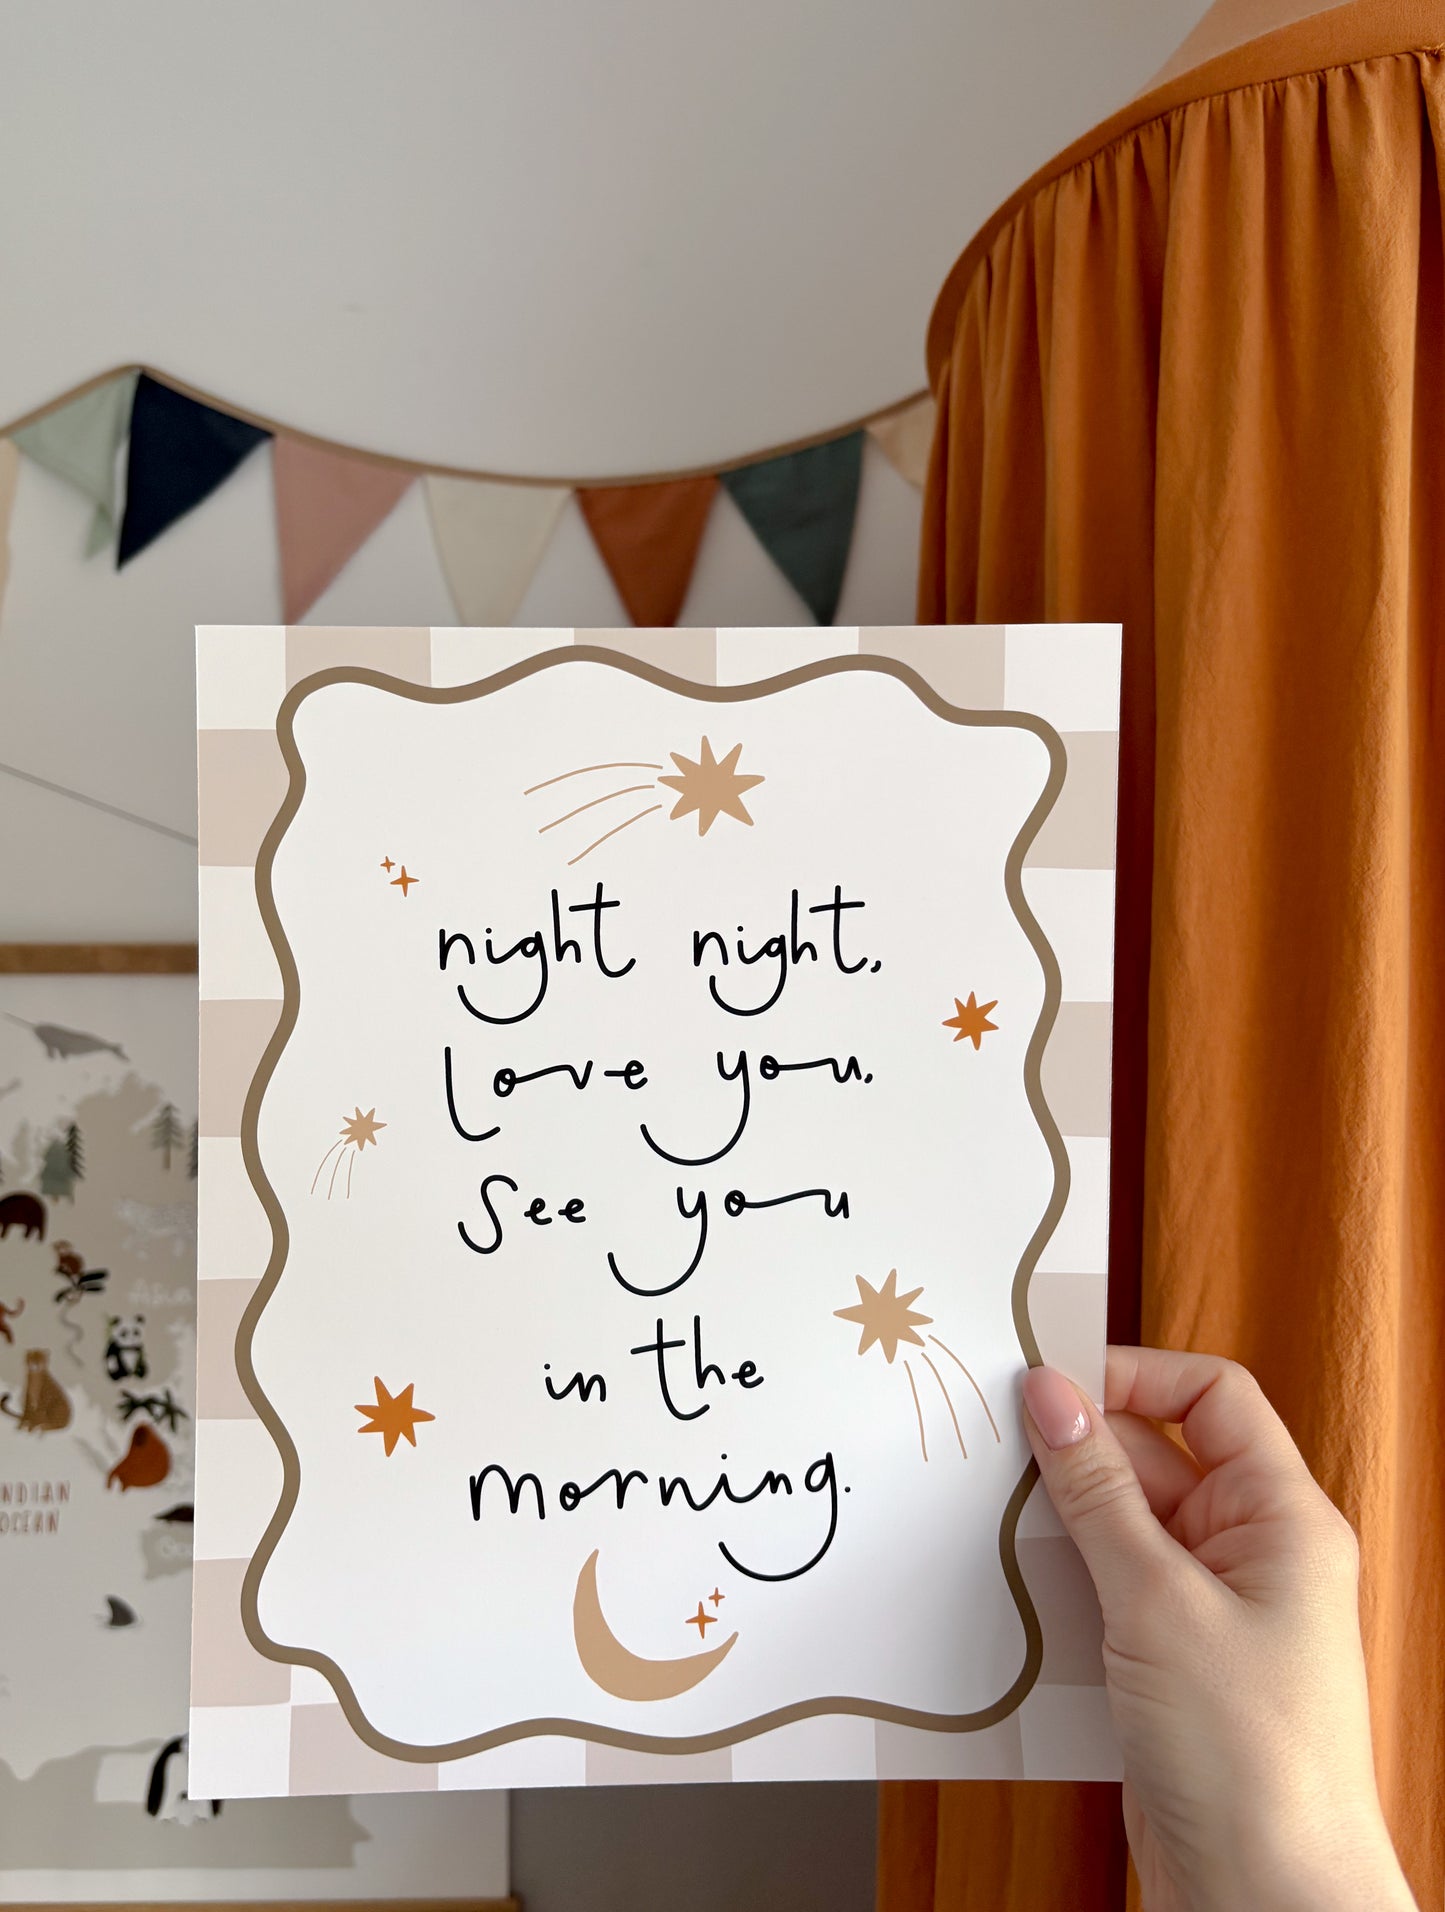 night night,
love you,
see you
in the
morning.
Asia
INDIAN
OCEAN